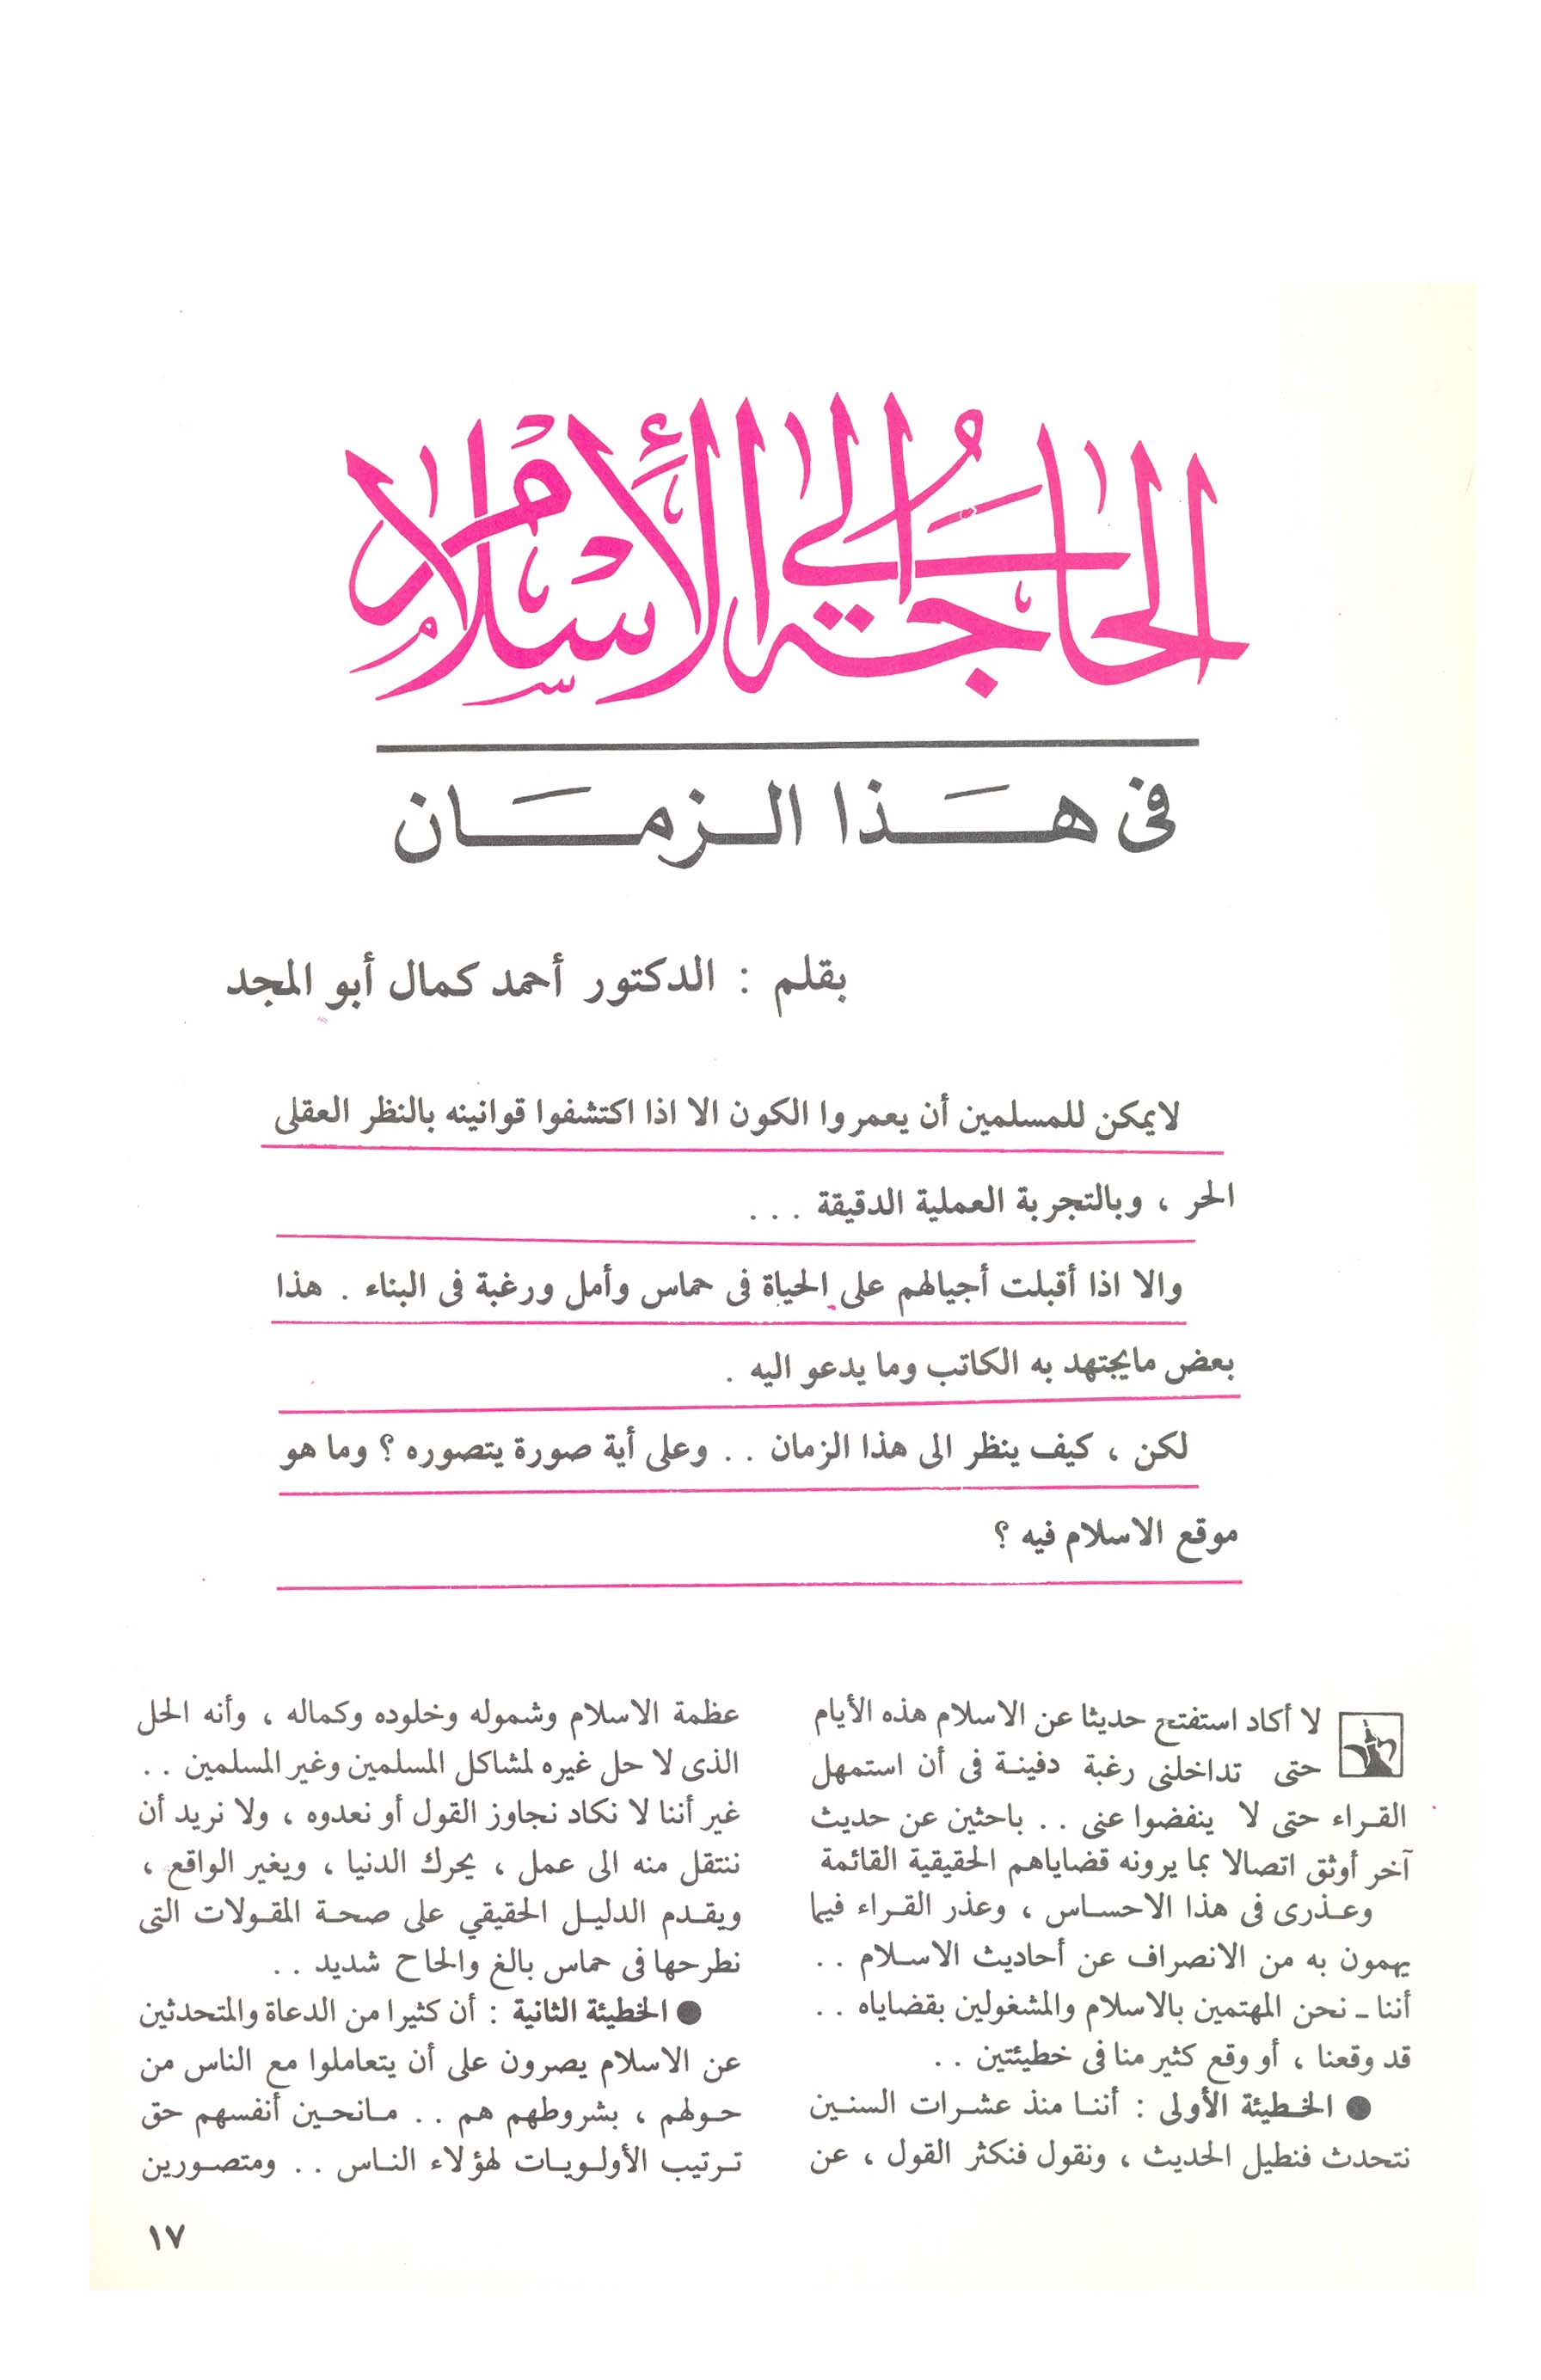 الحاجة إلى الإسلام
فى هذا الزمان
بقلم : الدكتور أحمد كمال أبو المجد
لايمكن للمسلمين أن يعمروا الكون الا اذا اكتشفوا قوانينه بالنظر العقلى
الحر ، وبالتجربة العملية الدقيقة . . .
والا اذا أقبلت أجيالهم على الحياة فى حماس وأمل ورغبة فى البناء . هذا
بعض مايجتهد به الكاتب وما يدعو اليه .
لكن ، كيف ينظر الى هذا الزمان . . وعلى أية صورة يتصوره ؟ وما هو
موقع الاسلام فيه ؟
لا أكاد استفتح حديثا عن الاسلام هذه الأيام
حتى تداخلنى رغبة دفينة فى أن استمهل
القراء حتى لا ينفضوا عنى . . باحثين عن حديث
آخر أوثق اتصالا بما يرونه قضاياهم الحقيقية القائمة
وعذرى فى هذا الاحساس ، وعذر القراء فيما
يهمون به من الانصراف عن أحاديث الاسلام . .
أننا ـ نحن المهتمين بالاسلام والمشغولين بقضاياه . .
قد وقعنا ، أو وقع كثير منا فى خطيئتين . .
● الخطيئة الأولى : أننا منذ عشرات السنين
نتحدث فنطيل الحديث ، ونقول فنكثر القول ، عن
عظمة الاسلام وشموله وخلوده وكماله ، وأنه الحل
الذى لا حل غيره لمشاكل المسلمين وغير المسلمين . .
غير أننا لا نكاد نجاوز القول أو نعدوه ، ولا نريد أن
ننتقل منه الى عمل ، يحرك الدنيا ، ويغير الواقع ،
ويقدم الدليل الحقيقي على صحة المقولات التى
نطرحها فى حماس بالغ والحاح شديد . .
● الخطيئة الثانية : أن كثيرا من الدعاة والمتحدثين
عن الاسلام يصرون على أن يتعاملوا مع الناس من
حولهم ، بشروطهم هم . . مانحين أنفسهم حق
ترتيب الأولويات لهؤلاء الناس . . ومتصورين
١٧